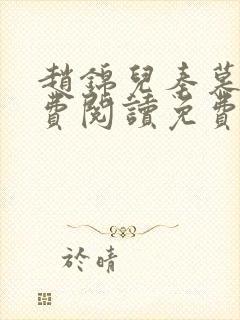 趙錦兒秦慕
費閱讀免費
於晴